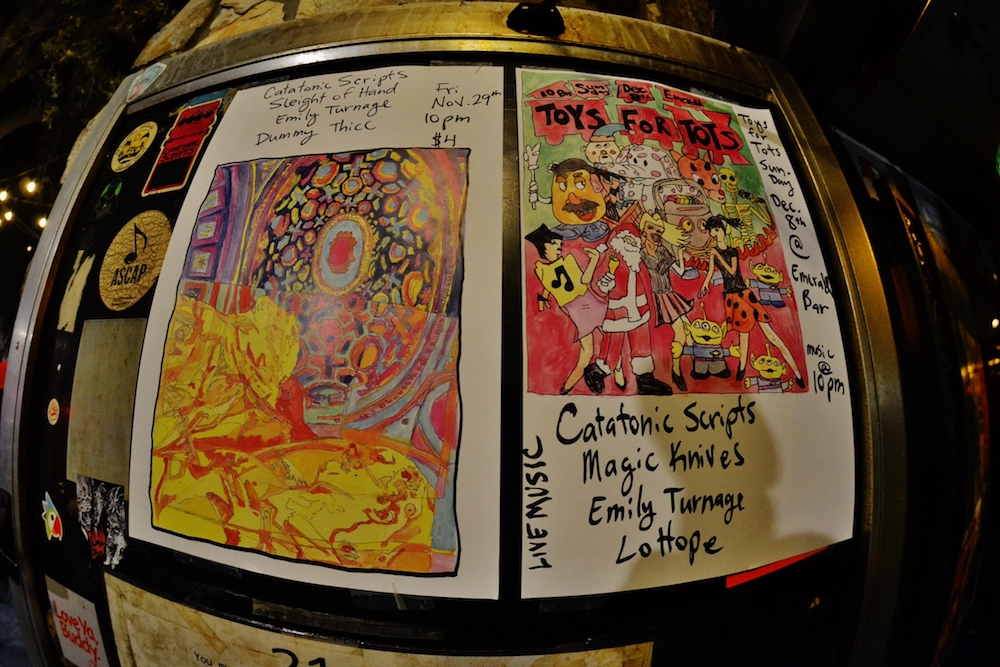 Catatonic Scripts
Sleight of Hand
Emily Turnage
Dummy Thicc
Fri
Nov. 29th
10pm
$4
10pm Sunday Dec. 8th
TOYS FOR TOTS
Toys
for
Tots
Sun-
Day
Dec.
8th
@
Emerald
Bar
music
@
10pm
LIVE MUSIC
Catatonic Scripts
Magic Knives
Emily Turnage
LoHope
ASCAP
Love Ya,
Buddy
You
21